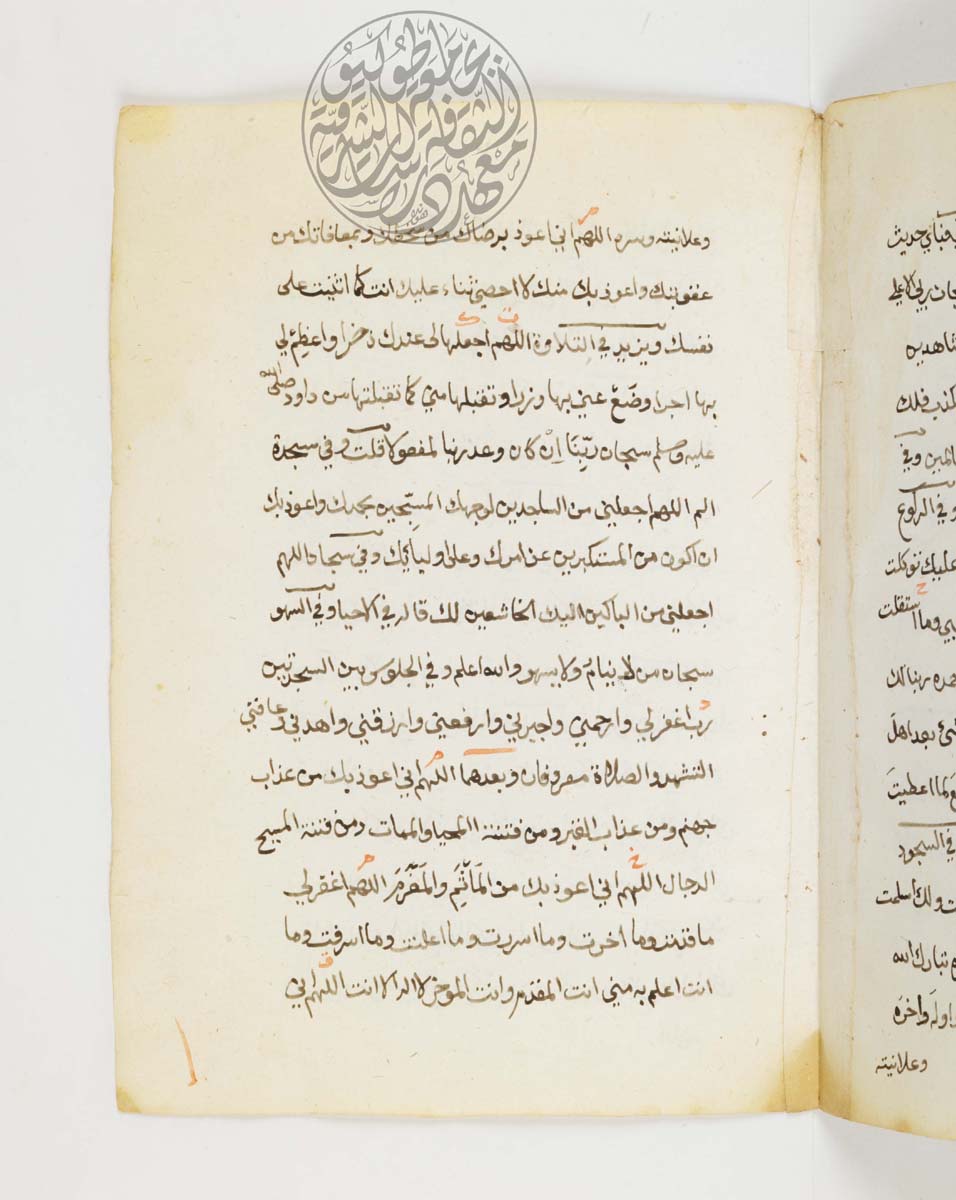 وعلانيته وسره اللهم اني اعوذ برضاك من سخطك وبمعافاتك من
عقوبتك واعوذ بك منك لا احصي ثناء عليك انت كما اثنيت على
نفسك ويزيد في التلاوة اللهم اجعلها لي عندك ذخرا واعظم لي
بها اجرا وضع عني بها وزرا وتقبلها مني كما تقبلتها من داود صلى الله
عليه وسلم سبحان ربنا ان كان وعد ربنا لمفعولا قلت وفي سجدة
الم اللهم اجعلني من الساجدين لوجهك المسبحين بحمدك واعوذ بك
ان اكون من المستكبرين عن امرك وعلى اوليائك وفي سبحان اللهم
اجعلني من الباكين اليك الخاشعين لك قاله في الاحيا وفي السهو
سبحان من لا ينام ولا يسهو والله اعلم وفي الجلوس بين السجدتين
رب اغفر لي وارحمني واجبرني وارفعني وارزقني واهدني وعافني
التشهد والصلاة معروفان وبعدهما اللهم اني اعوذ بك من عذاب
جهنم ومن عذاب القبر ومن فتنة المحيا والممات ومن فتنة المسيح
الدجال اللهم اني اعوذ بك من المأثم والمغرم اللهم اغفر لي
ما قدمت وما اخرت وما اسررت وما اعلنت وما اسرفت وما
انت اعلم به مني انت المقدم وانت الموخر لا اله الا انت اللهم اني
فباي حديث
ربي الاعلى
شاهدين
فلك
وفي
وفي الركوع
عليك توكلت
وما استقلت
ربنا لك
بعد اهل
لما اعطيت
في السجود
ولك اسلمت
تبارك الله
اوله واخره
وعلانيته